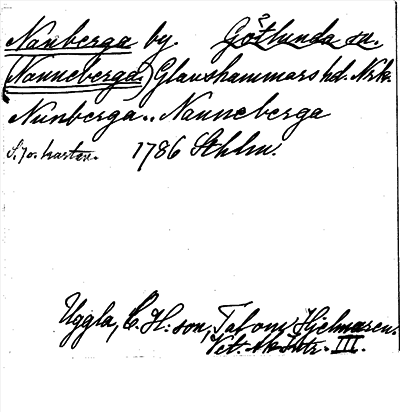 Nanberga by. Götlunda sn.
(Nanneberga.) Glanshammars hd. Nrk.
Nunberga.. Nanneberga
S. 70. karten. 1786 Sthlm.
Uggla, C. H:son, Tal om Hjelmaren.
Vet. Ak. Intr. III.